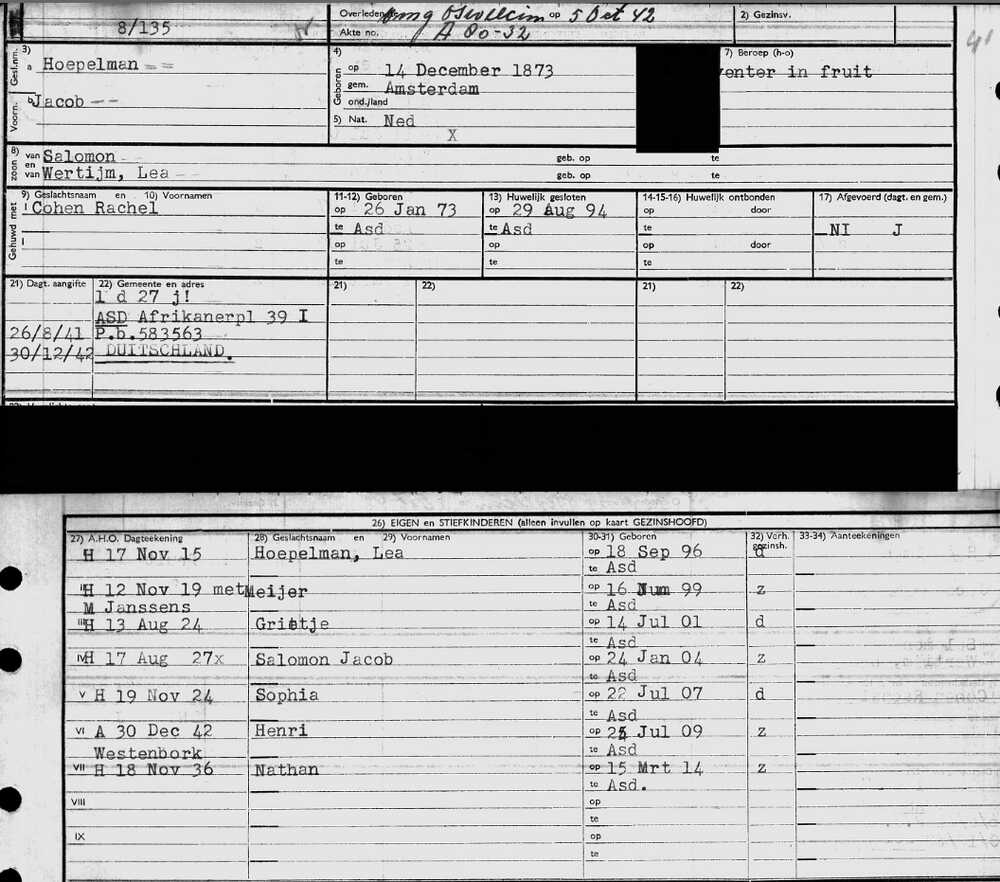 8/135
Overleden omg Oswiecim op 5 Oct 42
Akte no. A 80-32
2) Gezinsv.
3)
Gesl.nm.
a Hoepelman
Voorn.
b Jacob
4)
Geboren
op 14 December 1873
gem. Amsterdam
ond./land
5) Nat. Ned
X
7) Beroep (h-o)
venter in fruit
8)
zoon
van Salomon geb. op te
en
van Wertijm, Lea geb. op te
Gehuwd met
9) Geslachtsnaam en 10) Voornamen
I Cohen Rachel
11-12) Geboren
op 26 Jan 73
te Asd
op
te
13) Huwelijk gesloten
op 29 Aug 94
te Asd
op
te
14-15-16) Huwelijk ontbonden
op door
te
op door
te
17) Afgevoerd (dagt. en gem.)
NI J
21) Dagt. aangifte 22) Gemeente en adres 21) 22) 21) 22)
1 d 27 j!
ASD Afrikanerpl 39 I
26/8/41 P.b.583563
30/12/42 DUITSCHLAND.
26) EIGEN en STIEFKINDEREN (alleen invullen op kaart GEZINSHOOFD)
27) A.H.O. Dagteekening 28) Geslachtsnaam en 29) Voornamen 30-31) Geboren 32) Verh. gezinsh. 33-34) Aanteekeningen
H 17 Nov 15 Hoepelman, Lea op 18 Sep 96 d
te Asd
II H 12 Nov 19 met Meijer op 16 99 z
M Janssens te Asd
III H 13 Aug 24 Grietje op 14 Jul 01 d
te Asd
IV H 17 Aug 27x Salomon Jacob op 24 Jan 04 z
te Asd
V H 19 Nov 24 Sophia op 22 Jul 07 d
te Asd
VI A 30 Dec 42 Henri op Jul 09 z
Westenbork te Asd
VII H 18 Nov 36 Nathan op 15 Mrt 14 z
te Asd.
VIII op
te
IX op
te